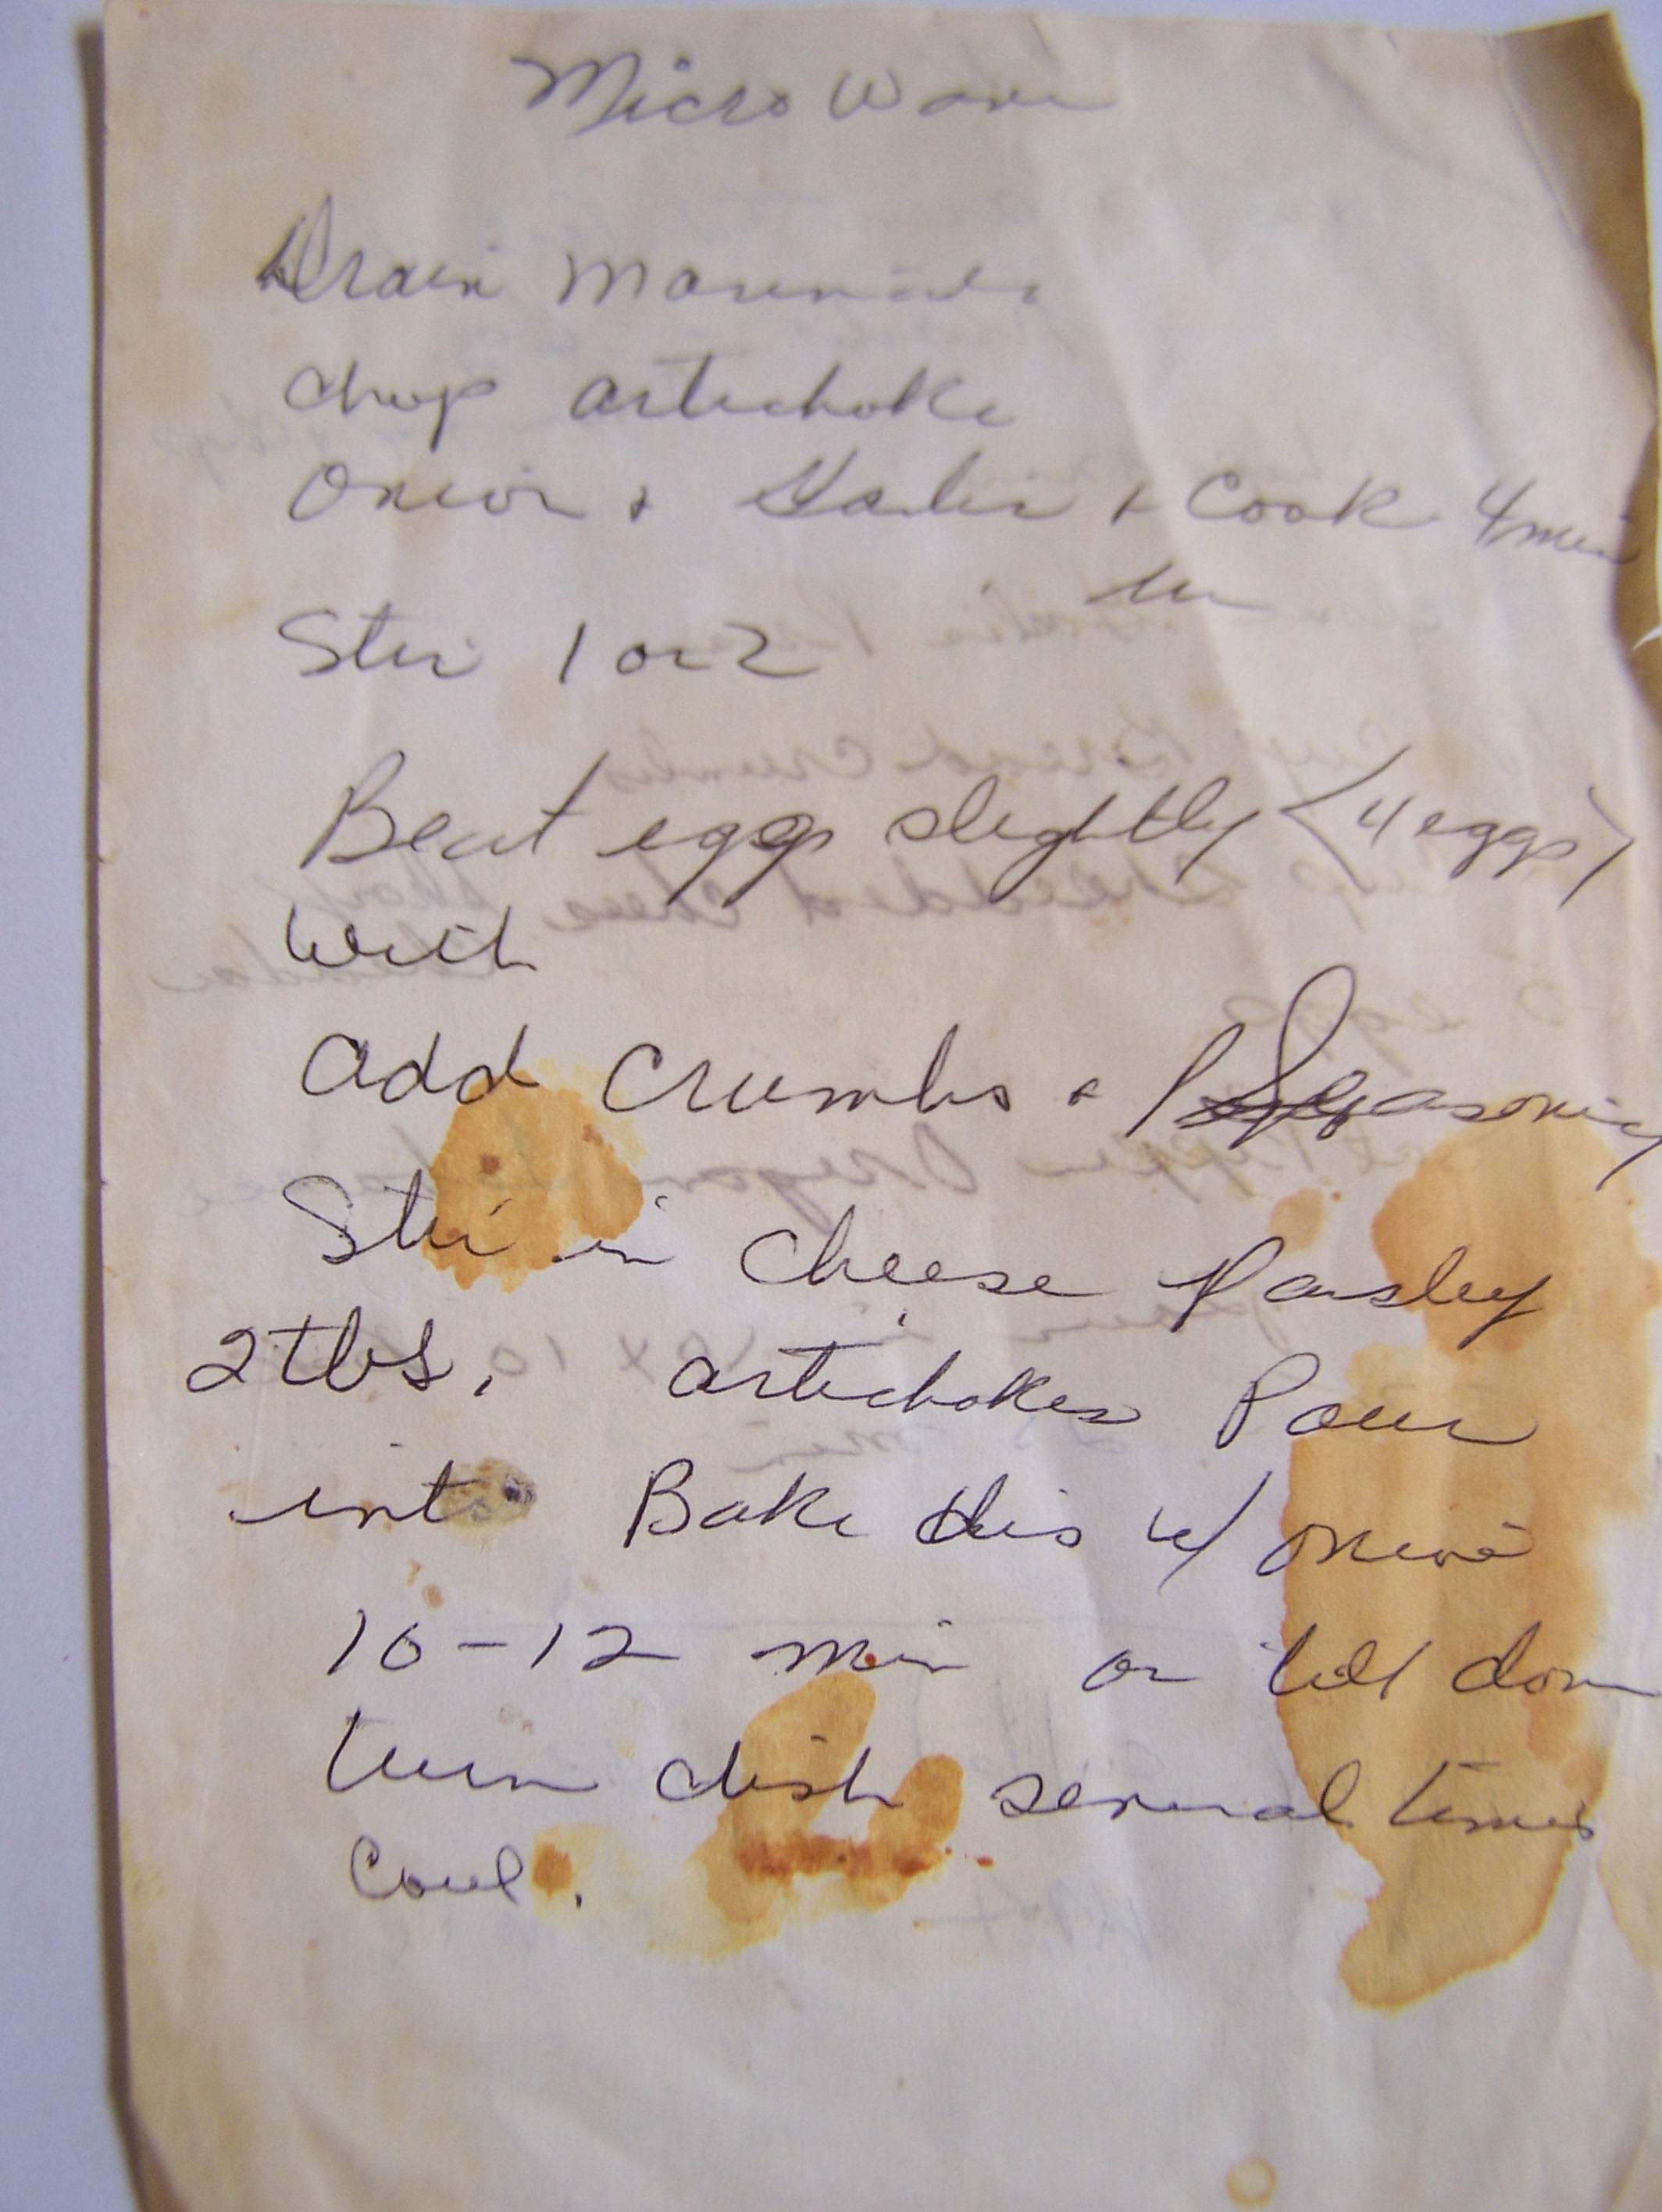 Micro Wave
Drain Marinade
chop artichoke
Onion + Garlic + Cook 4 min
Stir 1 or 2
Beat eggs slightly <4 eggs>
with
add Crumbs + Seasoning
Stir in Cheese Parsley
2 tbs. artichokes Pour
into Bake dis w/ onion
10-12 min or till done
turn dish several times
Cool.